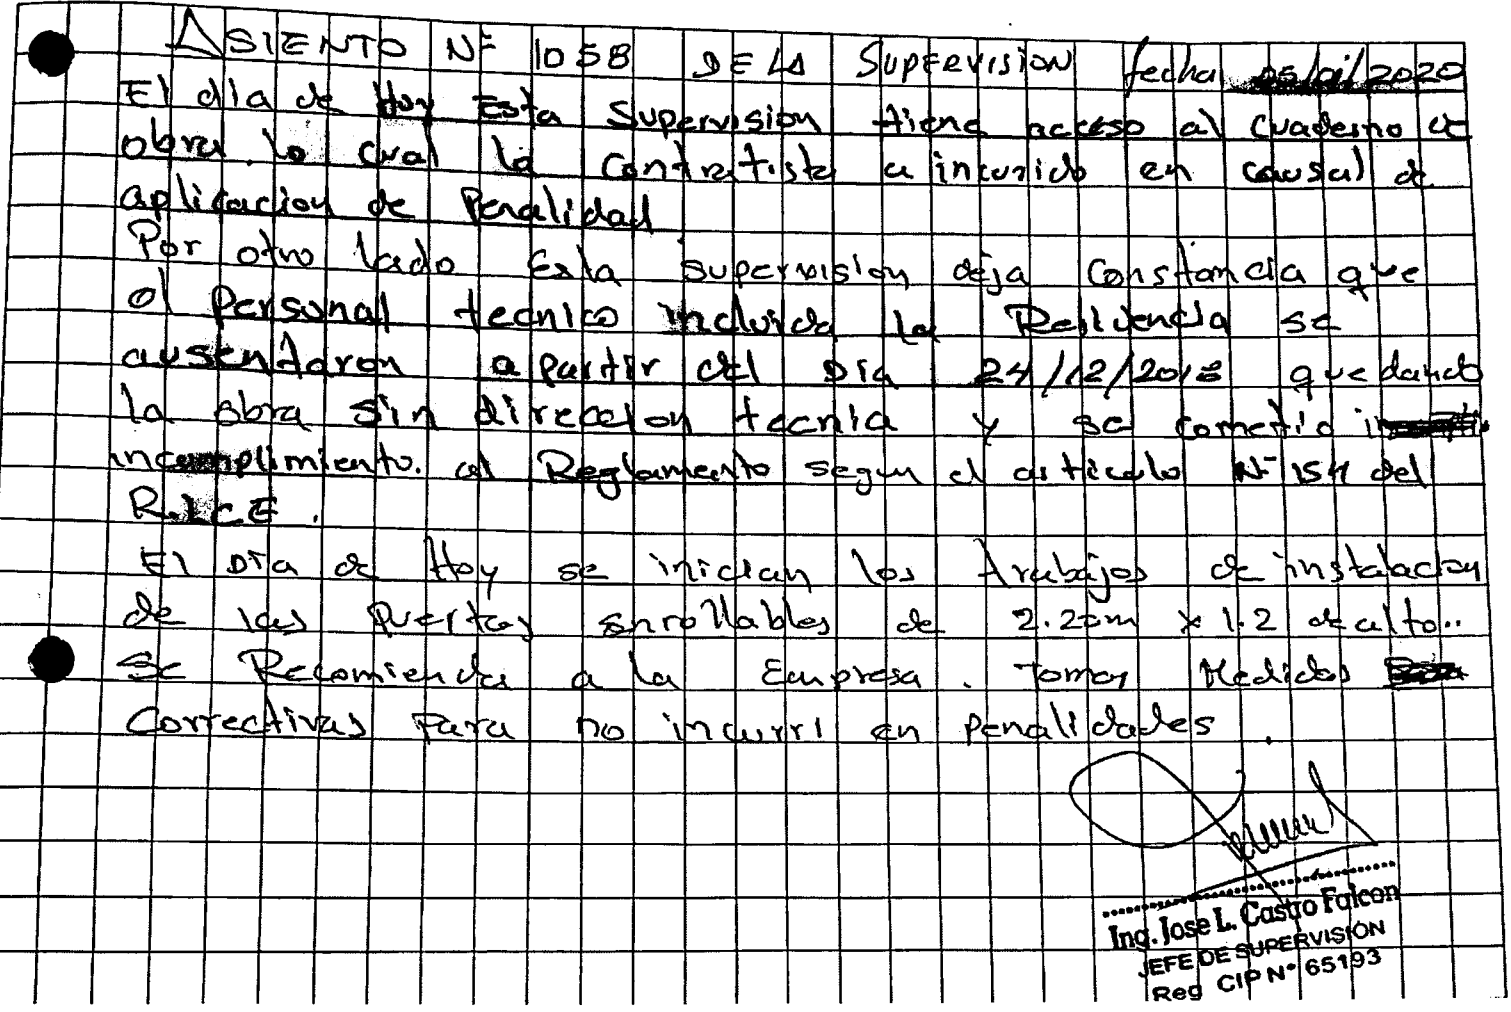 ASIENTO Nº 1058 DE LA SUPERVISION fecha 05/01/2020
El dia de Hoy Esta Supervision tiene acceso al cuaderno de
obra lo cual la Contratista a incurido en causal de
aplicacion de Penalidad
Por otro lado Esta supervision deja Constancia que
el Personal tecnico incluida la Residencia se
ausentaron a partir del Dia 24/12/2018 quedando
la obra sin direccion tecnia y se cometio
incumplimiento. al Reglamento segun el articulo Nº 154 del
R.LCE.
El Dia de Hoy se inician los trabajos de instalacion
de las Puertas enrollables de 2.20m x 1.2 de alto..
Se Recomienda a la Empresa. Tomar Medidas
Correctivas Para no incurri en Penalidades.
Ing. Jose L. Castro Falcon
JEFE DE SUPERVISIÓN
Reg CIP Nº 65193